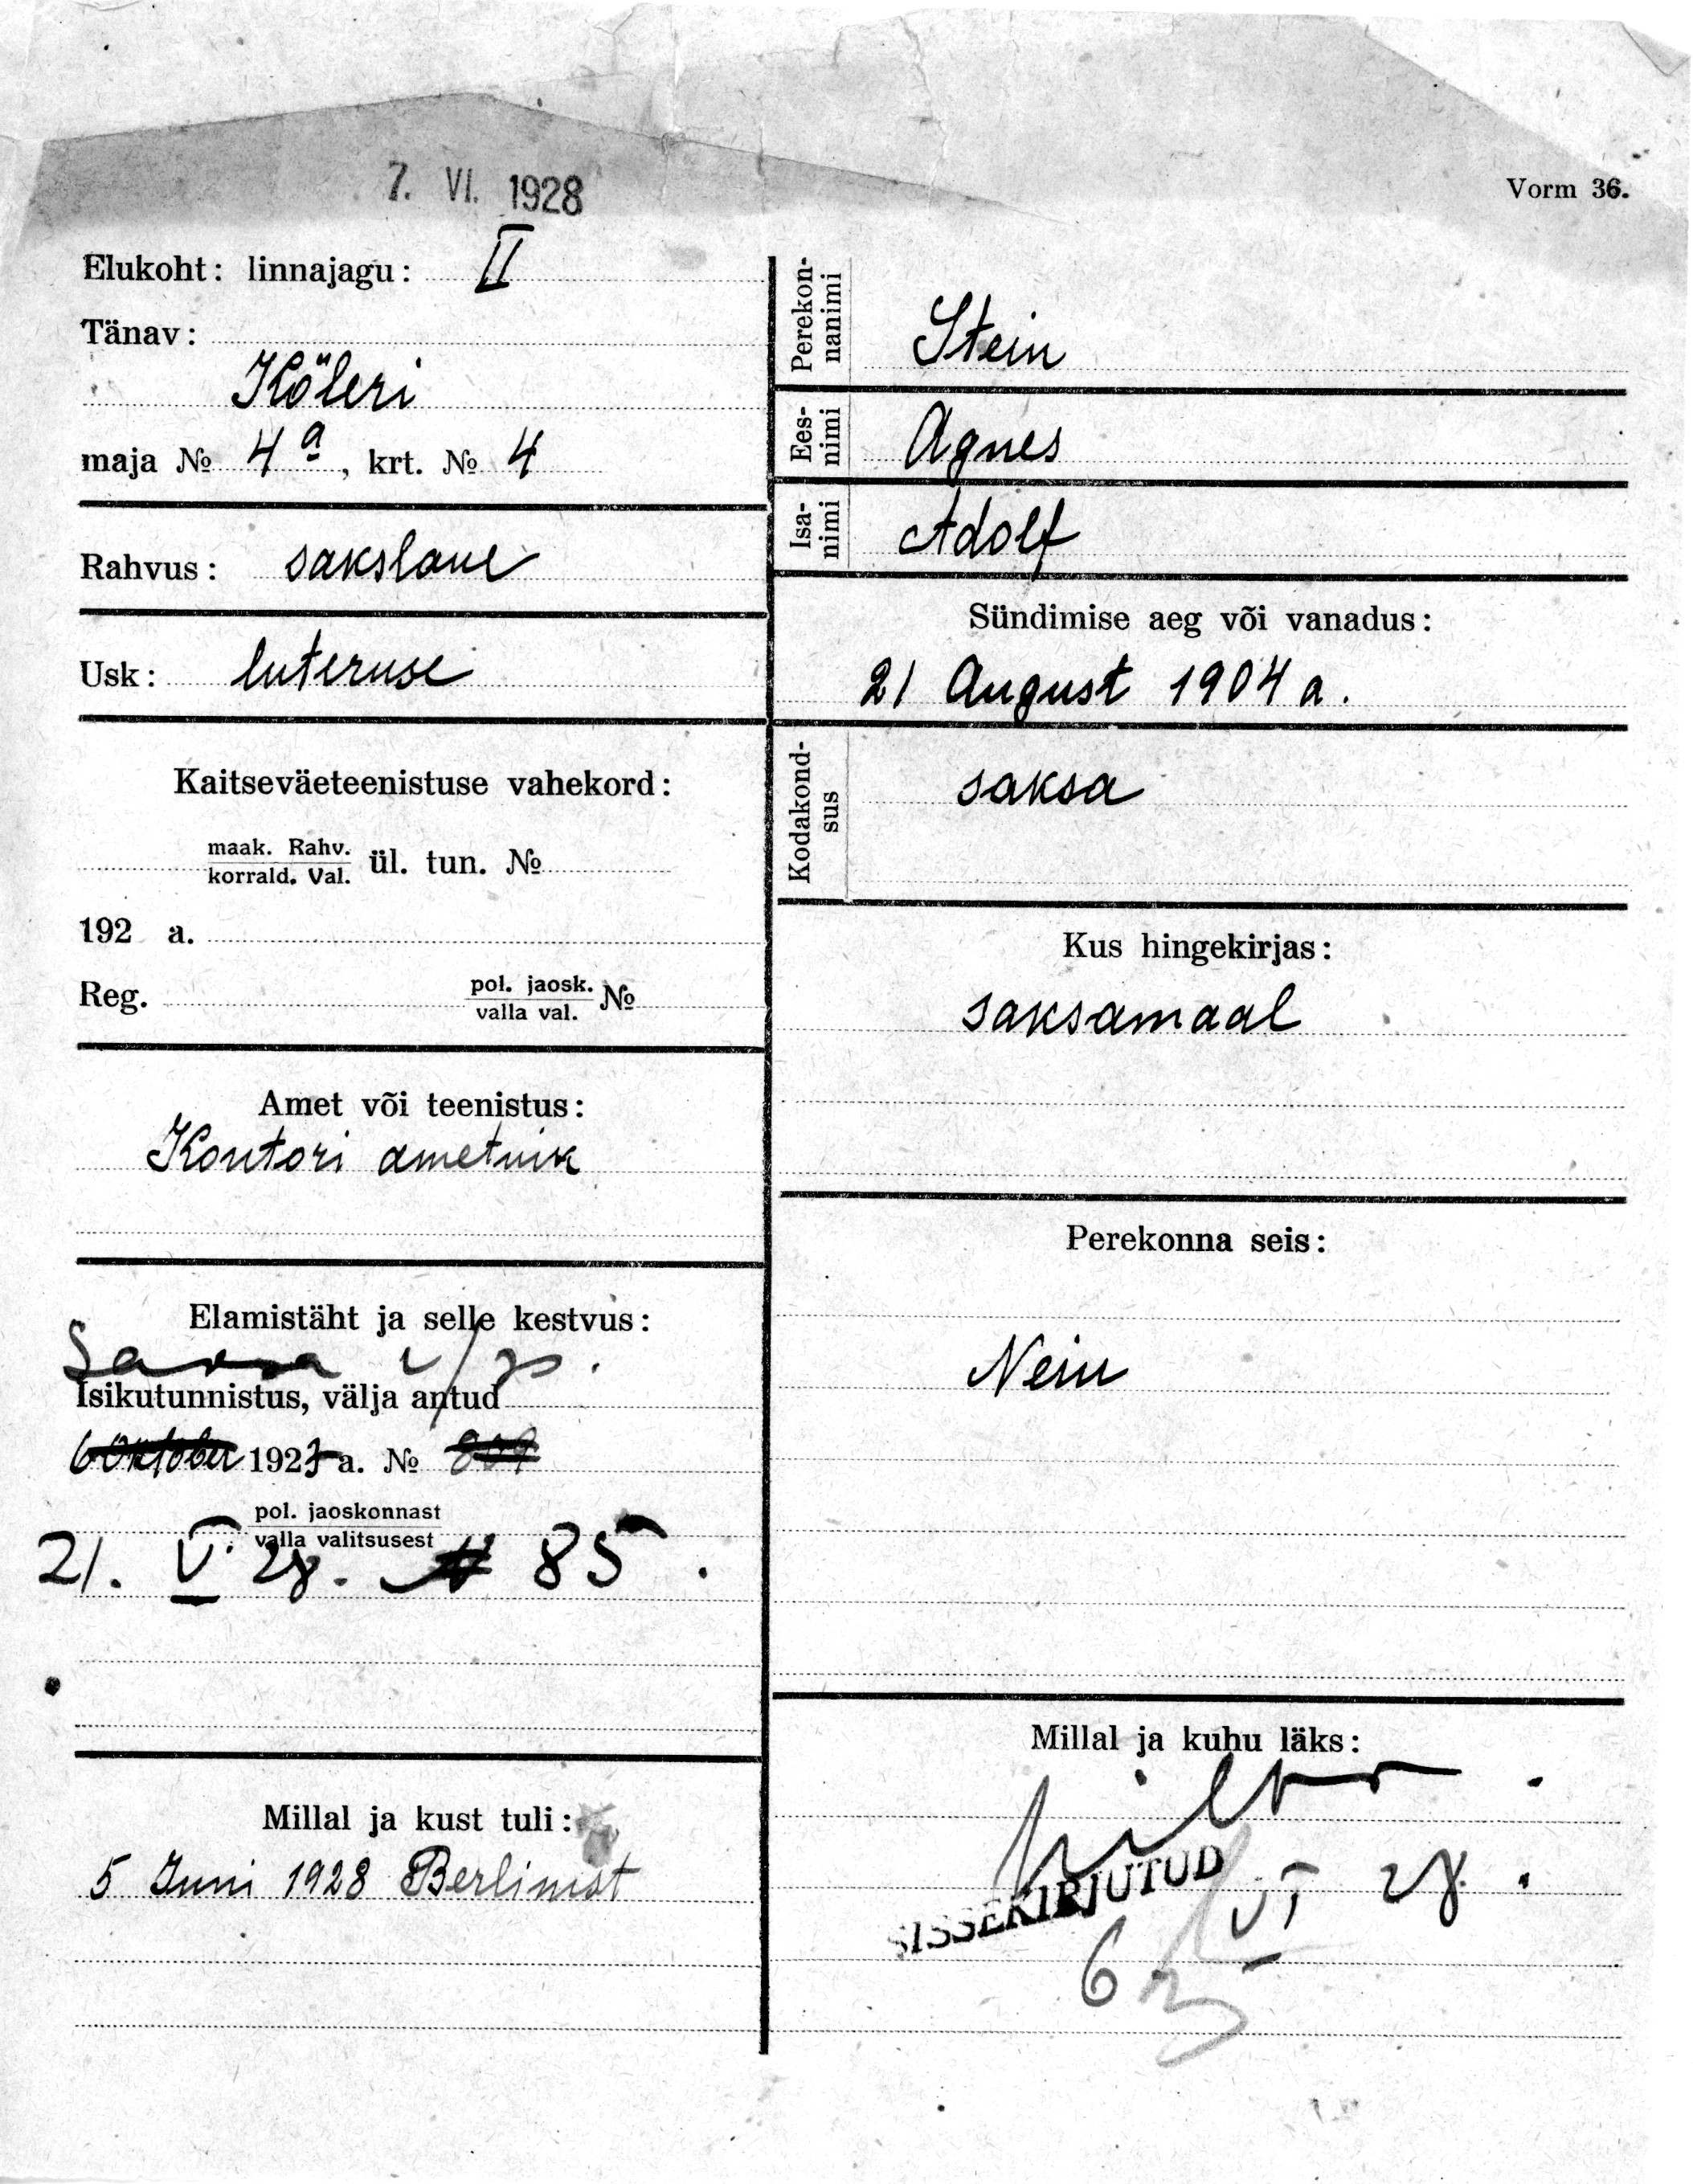 7. VI. 1928
Vorm 36.
Elukoht: linnajagu: II
Tänav:
Köleri
maja № 4 a, krt. № 4
Rahvus: sakslane
Usk: luteruse
Kaitseväeteenistuse vahekord:
maak. Rahv.
korrald. Val. ül. tun. №
192 a.
Reg. pol. jaosk.
valla val. №
Amet või teenistus:
Kontori ametnik
Elamistäht ja selle kestvus:
Saksa v/p.
Isikutunnistus, välja antud
6 Oktober 1923 a. № 809
pol. jaoskonnast
valla valitsusest
21. V. 28. № 85.
Millal ja kust tuli:
5 Juni 1928 Berlinist
Perekon-
nanimi
Stein
Ees-
nimi
Agnes
Isa-
nimi
Adolf
Sündimise aeg või vanadus:
21 August 1904 a.
Kodakond-
sus
saksa
Kus hingekirjas:
saksamaal
Perekonna seis:
Nein
Millal ja kuhu läks:
SISSEKIRJUTUD
VI 28.